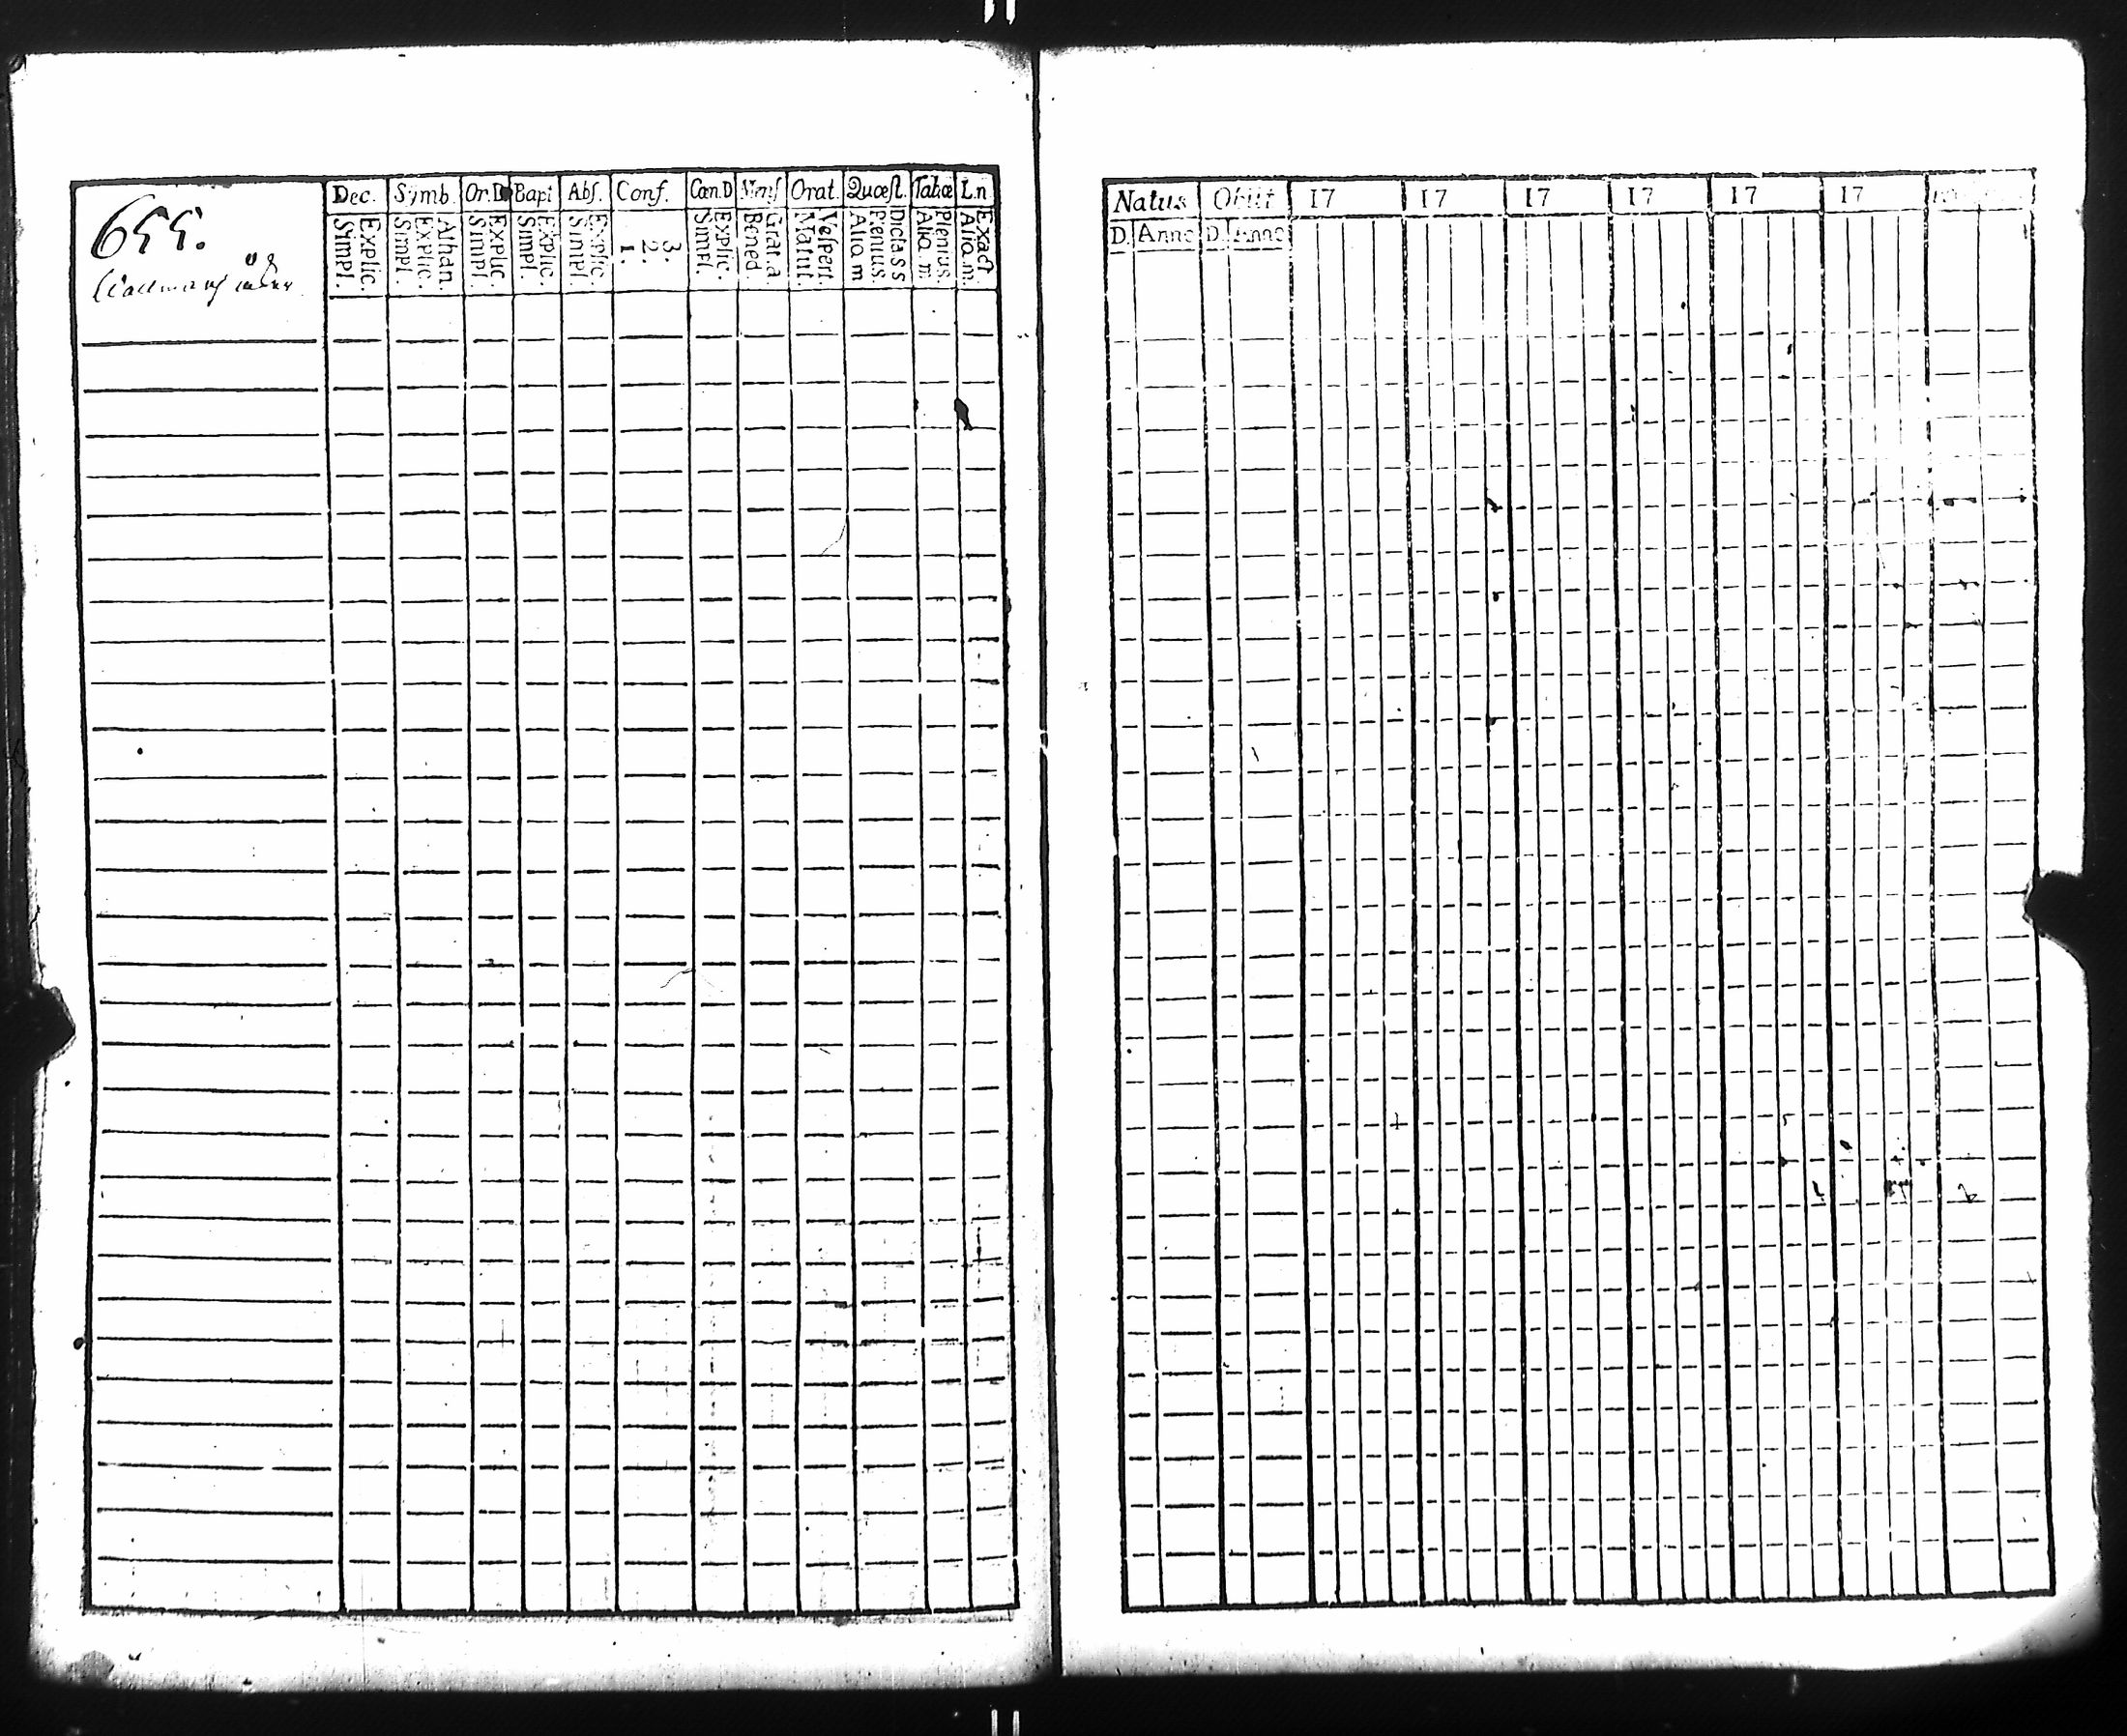 655.
Dec. Symb. Or.D Bapt Abſ. Conf. Cœn.D Menſ Orat. Quæſt. Tabæ L.n
Explic. Simpl.
Athan. Explic. Simpl.
Explic. Simpl.
Explic. Simpl.
Explic. Simpl.
3. 2. 1.
Explic. Simpl.
Grat.a Bened.
Veſpert. Matut.
Dicta s s Plenius. Aliq m
Plenius. Aliq. m.
Exact Aliq m.
Natus Obiit 17 17 17 17 17 17
D. Anno D. Anno